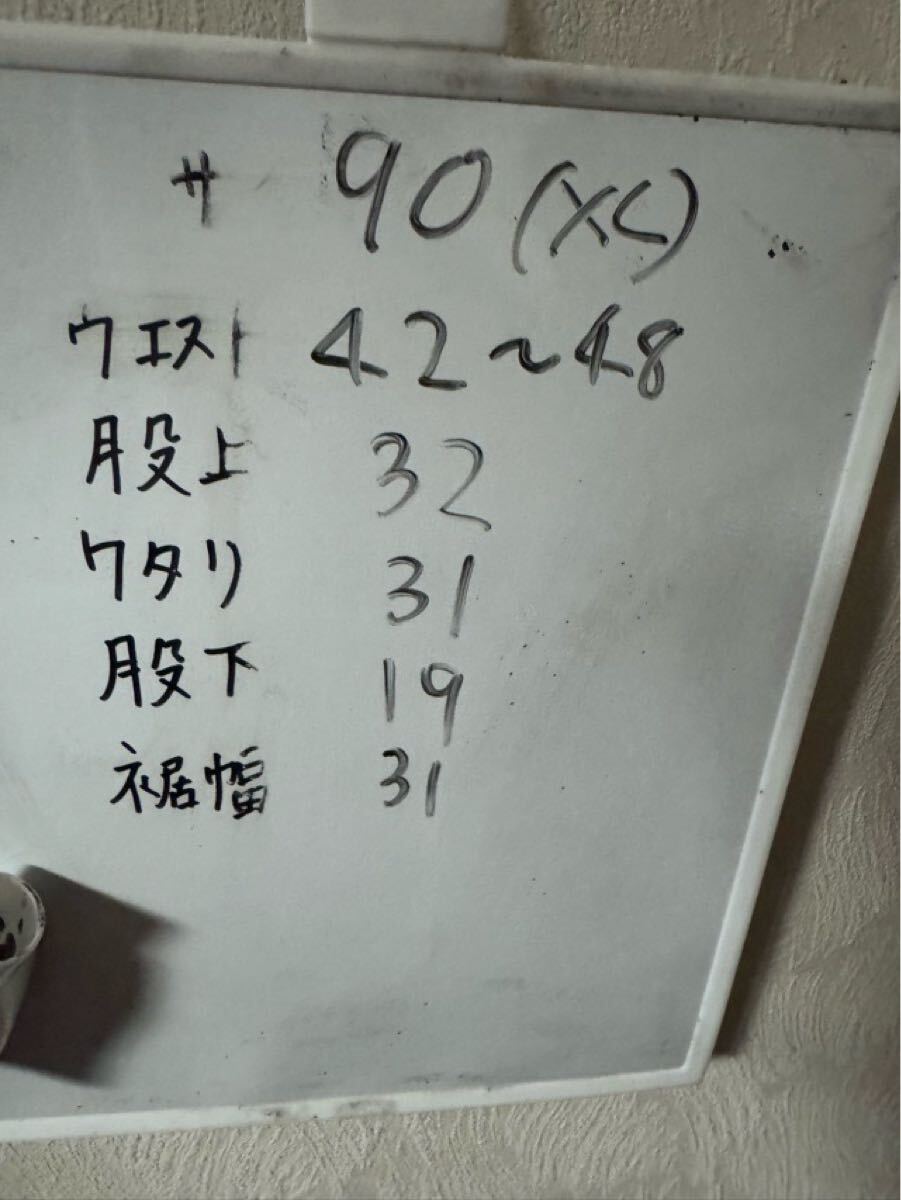 サ 90 (XL)
ウエスト 42~48
股上 32
ワタリ 31
股下 19
裾幅 31